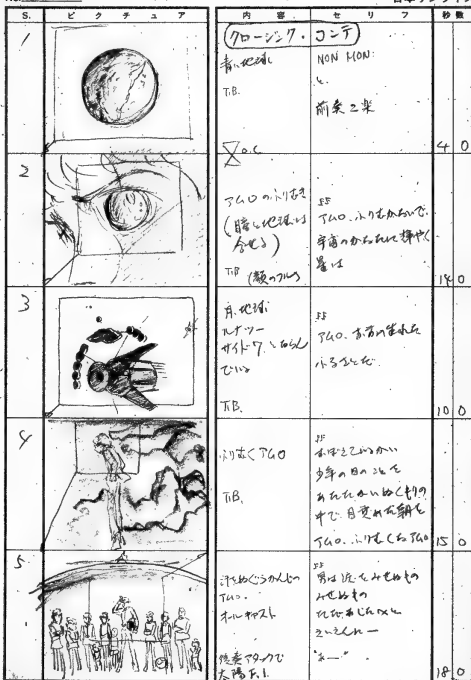 日本サンライズ
S. ピクチュア 内容 セリフ 秒数
クロージング・コンテ
1
青い地球
T.B.
O.C
NON MON
と
前奏2楽
4 0
2
アムロのふりむき
(瞳と地球は
合せる)
T.B (顔のフルへ
アムロ.ふりむかないで.
宇宙のかなたに輝やく
星は
14 0
3
月.地球
ルナツー
サイド7.とならん
でいる
T.B.
アムロ.お前の生れた
ふるさとだ.
10 0
4
ふりむくアムロ
T.B.
おぼえているかい
少年の日のことを
あたたかいぬくもりの
中で.目覚めた朝を
アムロ.ふりむくなアムロ
15 0
5
汗をぬぐうかんじの
アムロ.
オールキャスト
後奏アタックで
太陽F.I.
男は涙をみせぬもの
みせぬもの
ただあしたへと
18 0